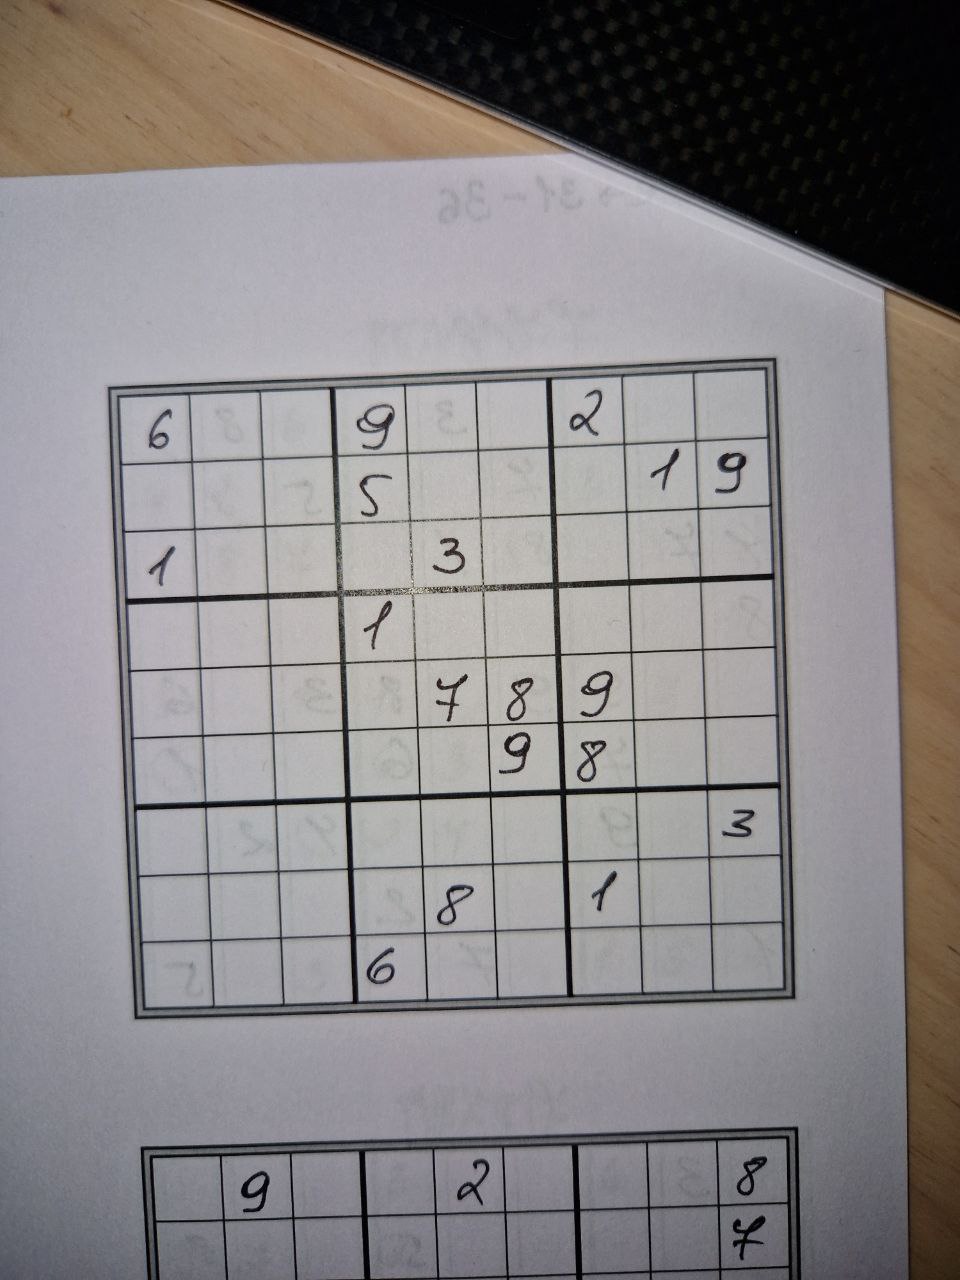 6 9 2
5 1 9
1 3
1
7 8 9
9 8
3
8 1
6
9 2 8
7